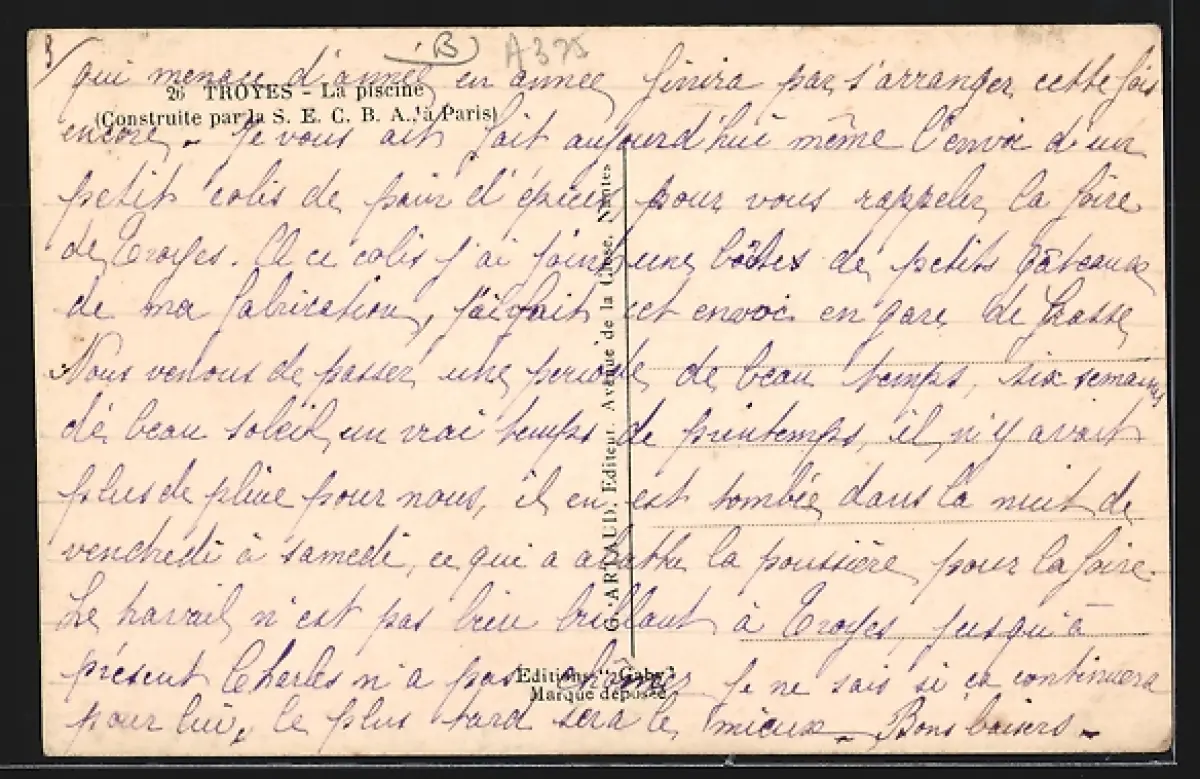 3/
B
A375
qui menace d'année en année finira par s'arranger cette fois
26 TROYES - La piscine
(Construite par la S. E. C. B. A., à Paris)
encore. Je vous ait fait aujourd'hui même l'envoi d'un
petit colis de pain d'épices pour vous rappeler la foire
de Troyes. A ce colis j'ai joint une boîtes de petits gâteaux
de ma fabrication, j'ai fait cet envoi en gare de Grasse
Nous venons de passer une periode de beau temps, six semaines
de beau soleil, un vrai temps de printemps, il n'y avait
plus de pluie pour nous, il en est tombée dans la nuit de
vendredi à samedi, ce qui a abattu la poussière pour la foire.
Le travail n'est pas bien brillant à Troyes, jusqu'à
présent Charles n'a pas chômé, Je ne sais si ça continuera
pour lui, le plus tard sera le mieux. Bons baisers.
G. ARTAUD, Editeur, Avenue de la Close, Nantes
Editions "Gaby"
Marque déposée